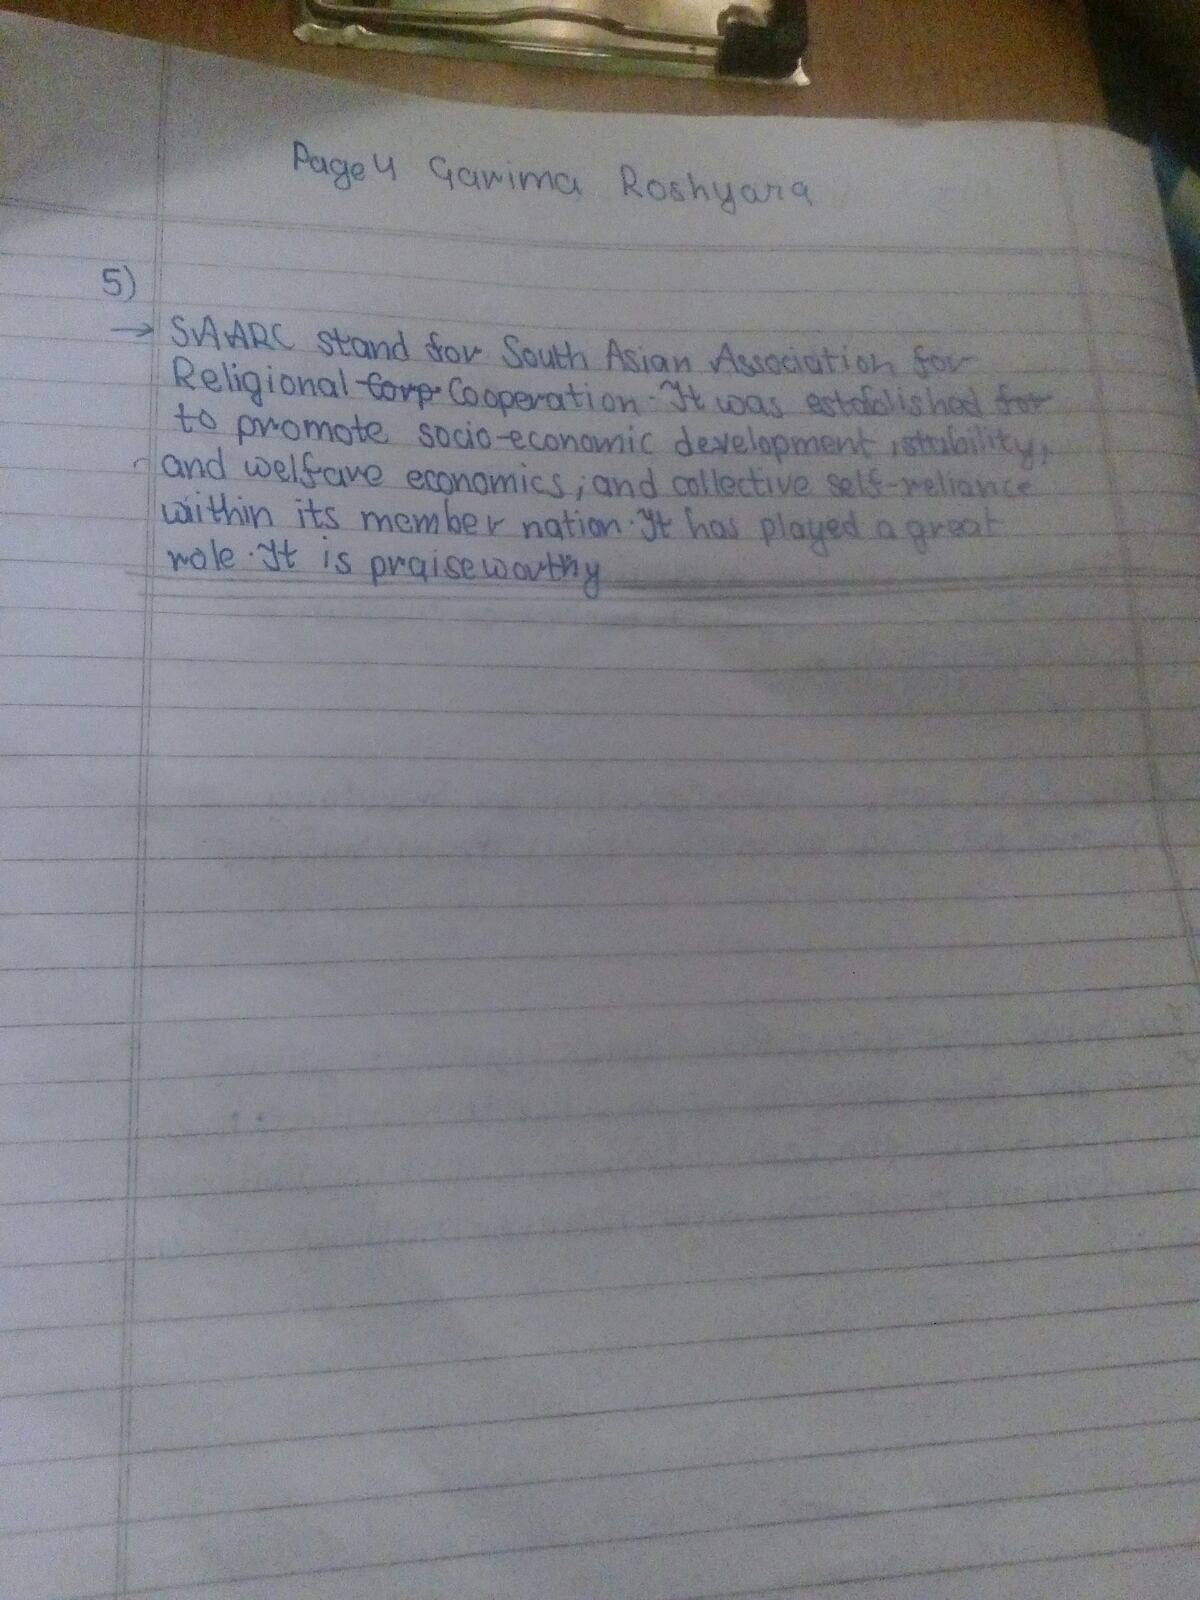 Page 4 Garima Roshyara
5)
→ SAARC stand for South Asian Association for
Religional Corp Cooperation. It was established for
to promote socio-economic development, stability,
and welfare economics, and collective self-reliance
within its member nation. It has played a great
role. It is praiseworthy